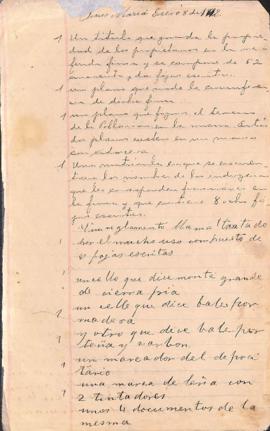 Jesus María Enero 8 de 1912.
1 Un título que guarda la propie
dad de los propietarios en la
finca y se compone de 52
cincuenta y dos fojas escritas.
1 un plano que mide la
de dicha finca
1 un plano que figura el terreno
de la Población en la misma
dos planos están en un mismo
1 Una matrícula en que se encuen
tra los nombres de los indígenas
que les corresponden fracciones en
la finca y que contiene 8 ocho fo
jas escritas.
Un reglamento
ber el mucho uso compuesto de
8 fojas escritas
1 un sello que dice monte grande
de cierra fria
1 un sello que dice bale por
madera
1 y otro que dice bale por
leña y carbon
1 un marcador del depoci
tario
1 una marca de leña con
2 tentadores
unos 4 documentos de la
mesma